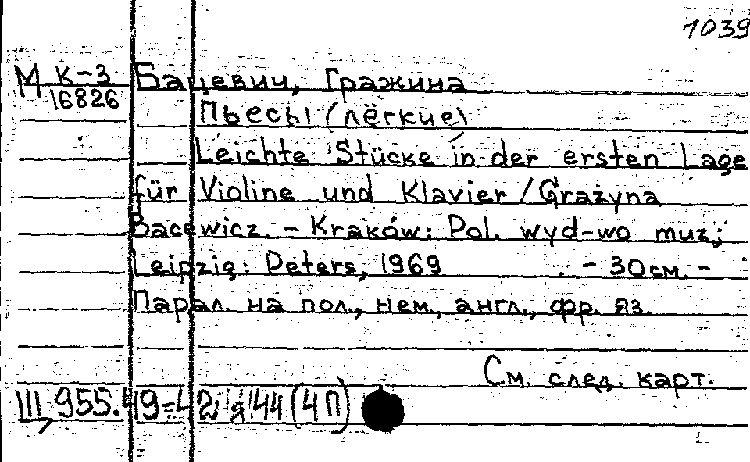 1039
М К-3 Бацевич, Гражина
16826 Пьесы (лёгкие)
Leichte Stücke in der ersten Lage
für Violine und Klavier / Grażyna
Bacewicz. - Kraków: Pol. wyd-wo muz.;
Leipzig: Peters, 1969 - 30 см. -
Парал. на пол., нем., англ., фр. яз.
См. след. карт.
Щ 955.49=42 я 44 (4П)